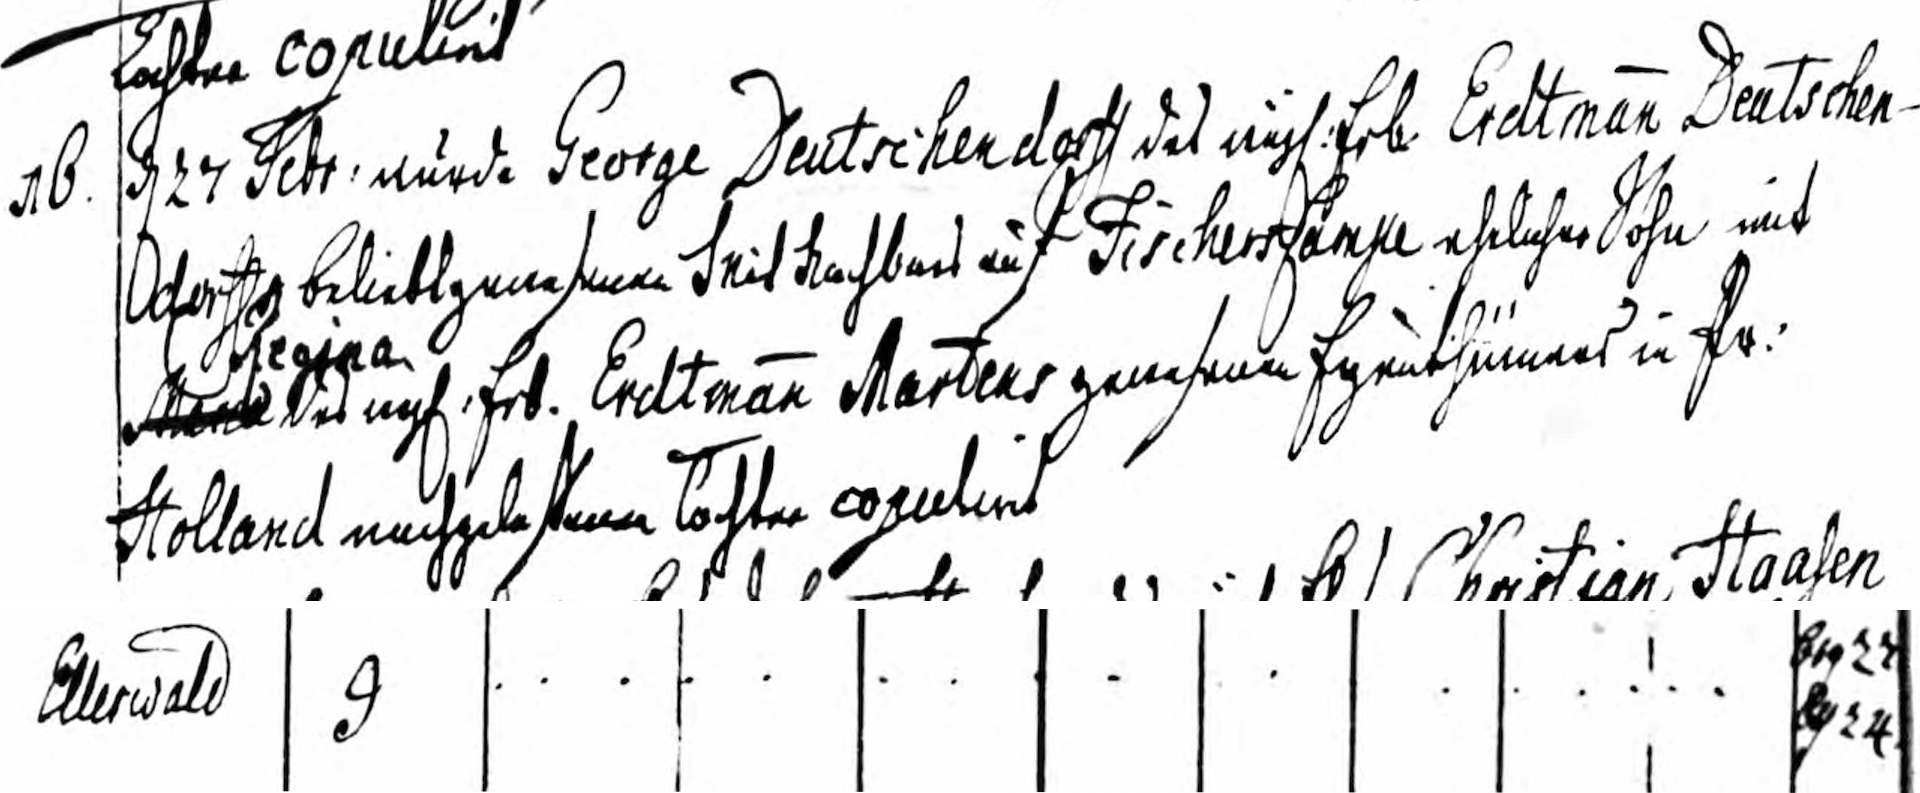 Tochter copulirt
NB. d 27 Febr: wurde George Deutschendorff des weyl: Erb. Erdtman̄ Deutschen-
dorffs beliebtgewesenen Mit Nachbars auf Fischerskampe ehelicher Sohn mit
Regina
des weyl: Erb. Erdtman̄ Martens gewesenen Eigenthümers in Pr:
Holland nachgelassenen Tochter copulirt
Christian Haasen
Ellerwald 9 27
24